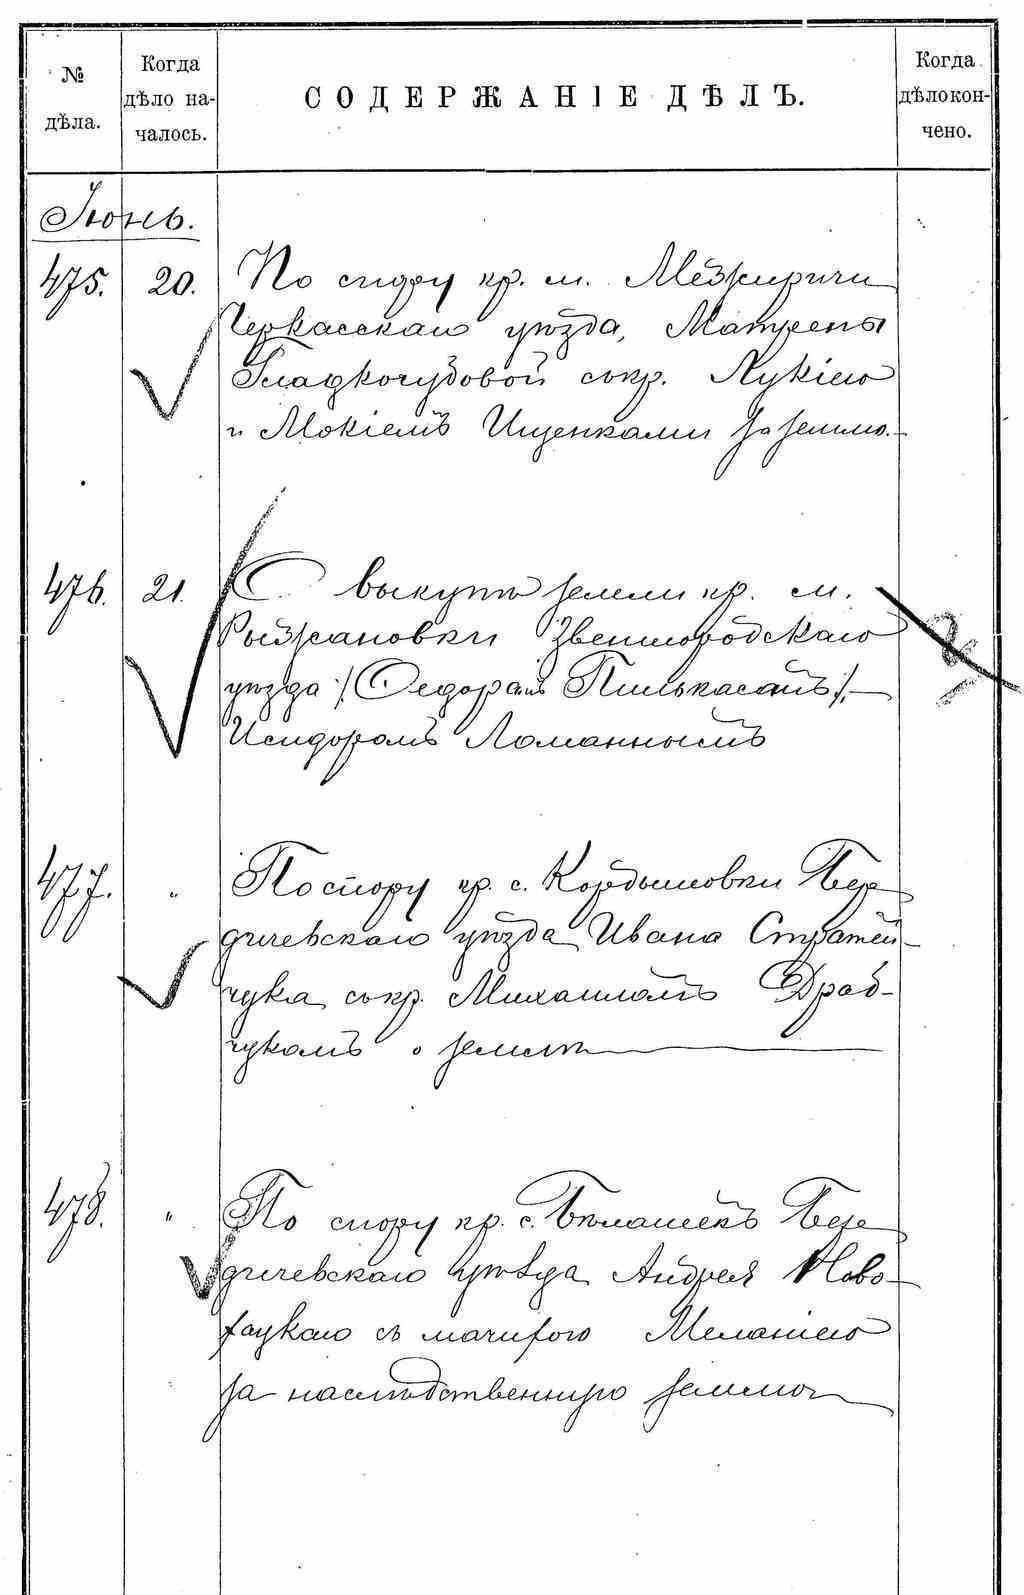 № дѣла.
Когда дѣло на-
чалось.
СОДЕРЖАНІЕ ДѢЛЪ.
Когда
дѣло кон-
чено.
Іюнь.
475. 20. По спору кр. м. Межиричи
Черкасскаго уѣзда, Матрены
Гладкочубовой съ кр. Лукіею
и Мокіемъ Ищенками за землю.
476. 21. О выкупѣ земли кр. м.
Рыжановки Звенигородскаго
уѣзда /: Федоромъ Пилькасомъ :/,
Исидоромъ Ломаннымъ
477. " По спору кр. с. Кордышовки Бер
дичевскаго уѣзда Ивана Стратей
чука съ кр. Михаиломъ Драб-
чукомъ о землѣ
478. " По спору кр. с. Бѣлашекъ Бер
дичевскаго уѣзда Андрея Ново
зацкаго съ мачихою Меланіею
за наслѣдственную землю